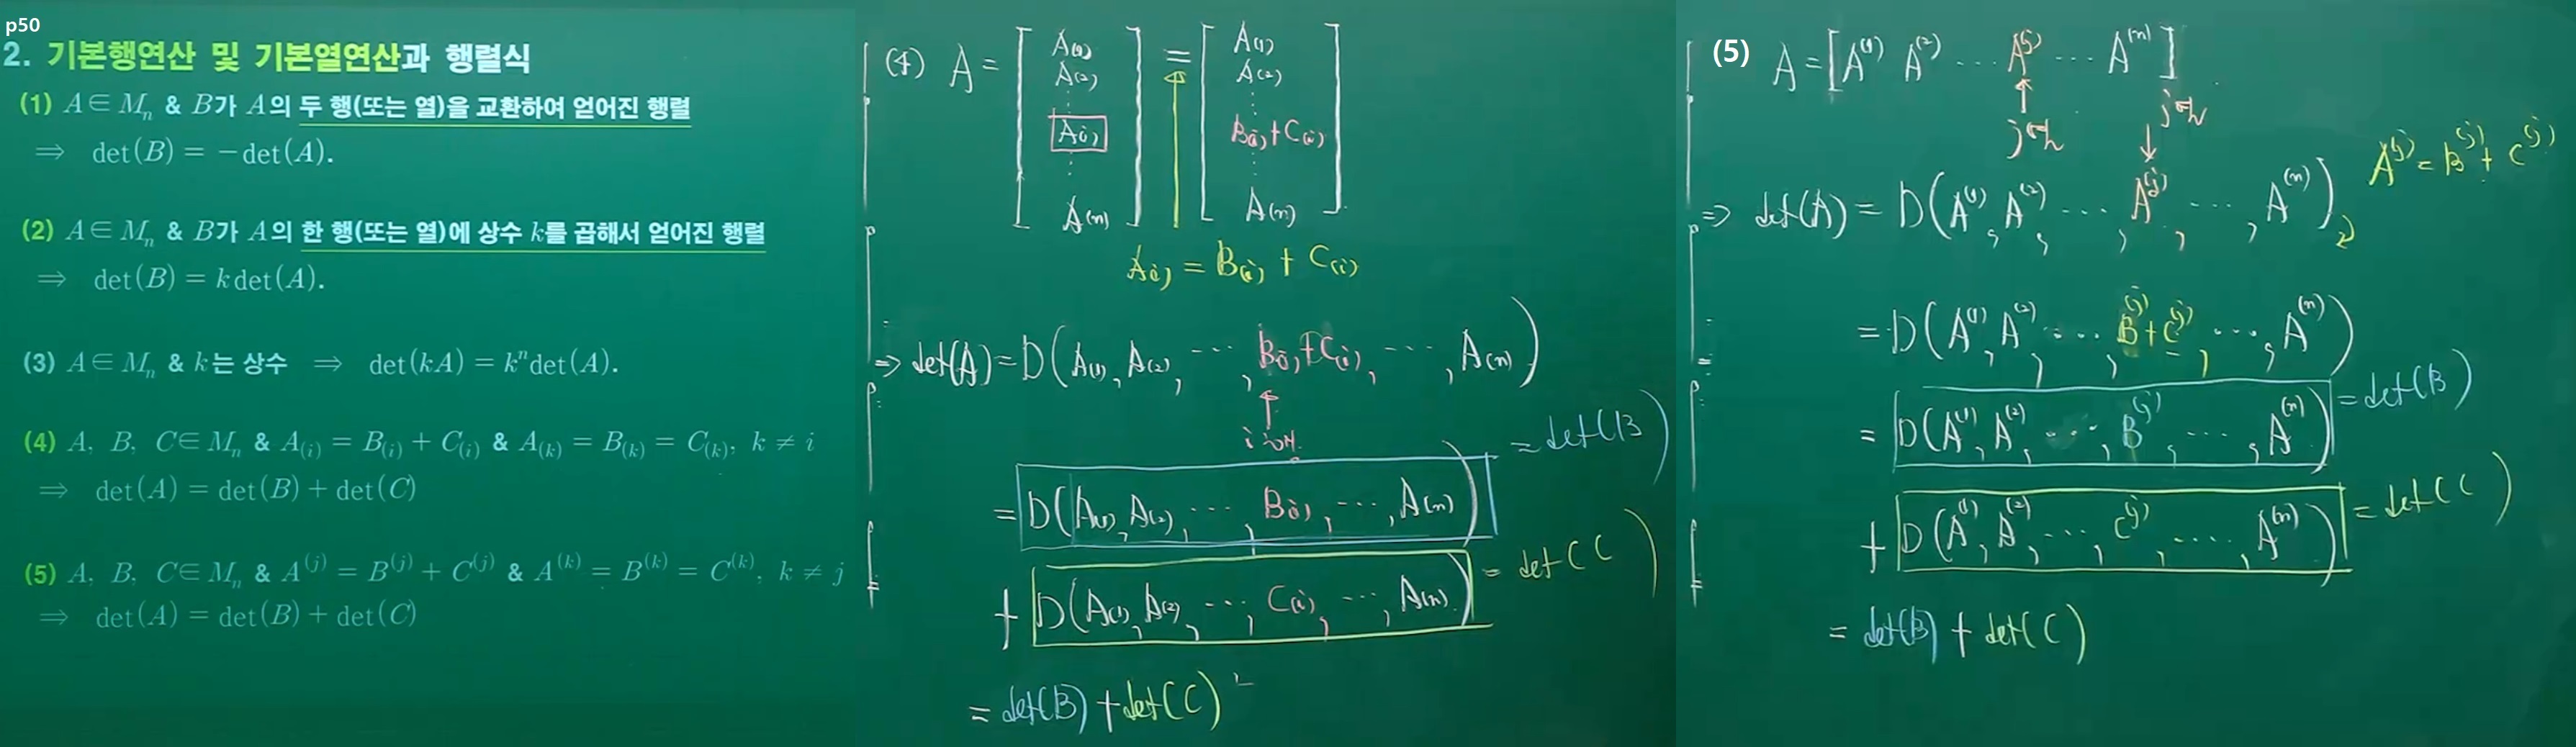 p50
2. 기본행연산 및 기본열연산과 행렬식
(1) A∈Mₙ & B가 A의 두 행(또는 열)을 교환하여 얻어진 행렬
⇒ det(B) = −det(A).
(2) A∈Mₙ & B가 A의 한 행(또는 열)에 상수 k를 곱해서 얻어진 행렬
⇒ det(B) = k det(A).
(3) A∈Mₙ & k는 상수 ⇒ det(kA) = kⁿdet(A).
(4) A, B, C∈Mₙ & A₍ᵢ₎ = B₍ᵢ₎ + C₍ᵢ₎ & A₍ₖ₎ = B₍ₖ₎ = C₍ₖ₎, k ≠ i
⇒ det(A) = det(B) + det(C)
(5) A, B, C∈Mₙ & A⁽ʲ⁾ = B⁽ʲ⁾ + C⁽ʲ⁾ & A⁽ᵏ⁾ = B⁽ᵏ⁾ = C⁽ᵏ⁾, k ≠ j
⇒ det(A) = det(B) + det(C)
(4) A = [A₍₁₎ A₍₂₎ ⋮ A₍ᵢ₎ ⋮ A₍ₙ₎] = [A₍₁₎ A₍₂₎ ⋮ B₍ᵢ₎+C₍ᵢ₎ ⋮ A₍ₙ₎]
A₍ᵢ₎ = B₍ᵢ₎ + C₍ᵢ₎
⇒ det(A) = D(A₍₁₎, A₍₂₎, ⋯, B₍ᵢ₎+C₍ᵢ₎, ⋯, A₍ₙ₎)
= D(A₍₁₎, A₍₂₎, ⋯, B₍ᵢ₎, ⋯, A₍ₙ₎) = det(B)
+ D(A₍₁₎, A₍₂₎, ⋯, C₍ᵢ₎, ⋯, A₍ₙ₎) = det(C)
= det(B) + det(C)
(5) A = [A⁽¹⁾ A⁽²⁾ ⋯ A⁽ʲ⁾ ⋯ A⁽ⁿ⁾]
jth
jth
A⁽ʲ⁾ = B⁽ʲ⁾ + C⁽ʲ⁾
⇒ det(A) = D(A⁽¹⁾, A⁽²⁾, ⋯, A⁽ʲ⁾, ⋯, A⁽ⁿ⁾)
= D(A⁽¹⁾, A⁽²⁾, ⋯, B⁽ʲ⁾+C⁽ʲ⁾, ⋯, A⁽ⁿ⁾)
= D(A⁽¹⁾, A⁽²⁾, ⋯, B⁽ʲ⁾, ⋯, A⁽ⁿ⁾) = det(B)
+ D(A⁽¹⁾, A⁽²⁾, ⋯, C⁽ʲ⁾, ⋯, A⁽ⁿ⁾) = det(C)
= det(B) + det(C)